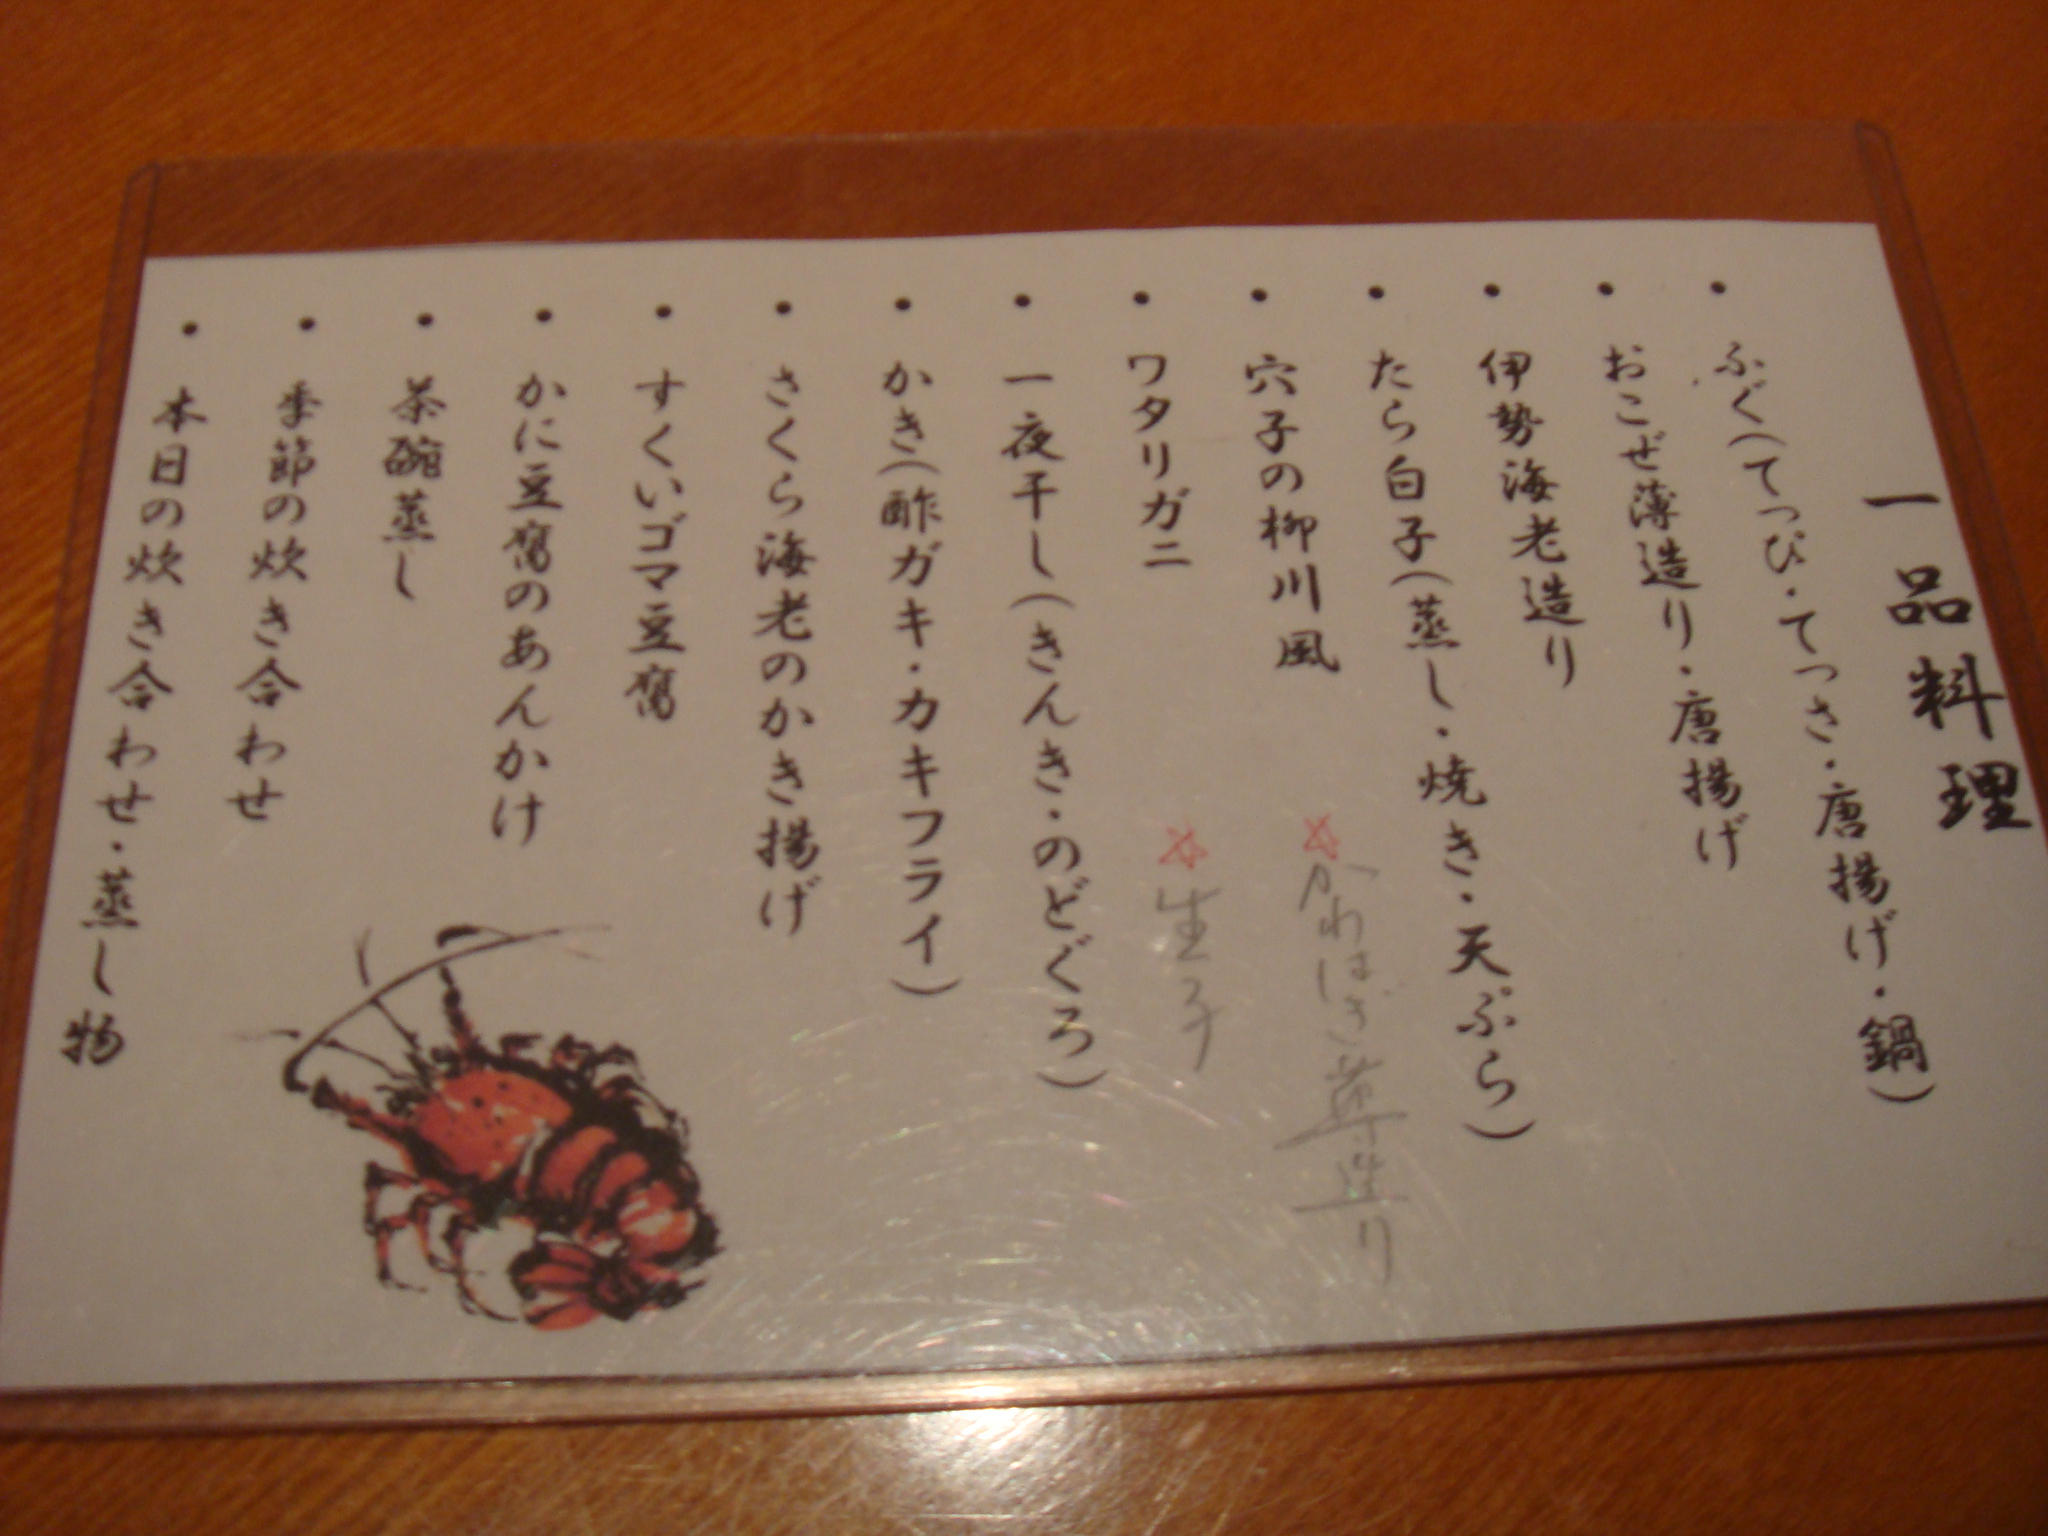 一品料理
・ふぐ(てっぴ・てっさ・唐揚げ・鍋)
・おこぜ薄造り・唐揚げ
・伊勢海老造り
・たら白子(蒸し・焼き・天ぷら)
・穴子の柳川風
☆かわはぎ薄造り
・ワタリガニ
☆生子
・一夜干し(きんき・のどぐろ)
・かき(酢ガキ・カキフライ)
・さくら海老のかき揚げ
・すくいゴマ豆腐
・かに豆腐のあんかけ
・茶碗蒸し
・季節の炊き合わせ
・本日の炊き合わせ・蒸し物